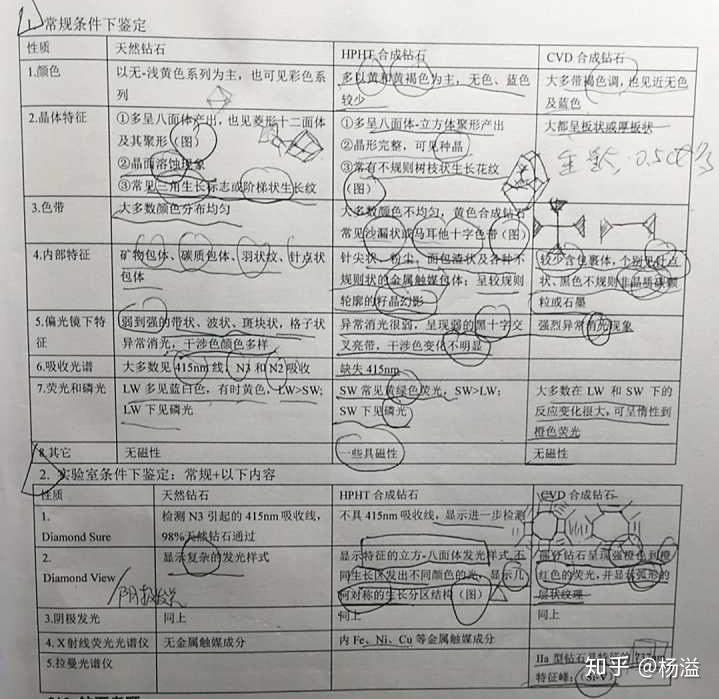 1、常规条件下鉴定
性质 天然钻石 HPHT合成钻石 CVD合成钻石
1.颜色 以无-浅黄色系列为主，也可见彩色系 多以黄和黄褐色为主，无色、蓝色 大多带褐色调，也见近无色
列 较少 及蓝色
2.晶体特征 ①多呈八面体产出，也见菱形十二面体 ①多呈八面体-立方体聚形产出 大都呈板状或厚板状
及其聚形（图） ②晶形完整，可见种晶
②晶面溶蚀现象 ③常有不规则树枝状生长花纹
③常见三角生长标志或阶梯状生长纹 （图）
3.色带 大多数颜色分布均匀 大多数颜色不均匀，黄色合成钻石
常见沙漏状或马耳他十字色带（图）
4.内部特征 矿物包体、碳质包体、羽状纹、针点状 针尖状、粉尘，面包渣状及各种不 较少含包裹体，个别见针点
包体 规则状的金属触媒包体；呈较规则 状、黑色不规则非晶质碳颗
轮廓的籽晶幻影 粒或石墨
5.偏光镜下特 弱到强的带状、波状、斑块状，格子状 异常消光很弱，呈现弱的黑十字交 强烈异常消光现象
征 异常消光，干涉色颜色多样 叉亮带，干涉色变化不明显
6.吸收光谱 大多数见415nm线，N3和N2吸收 缺失415nm
7.荧光和磷光 LW多见蓝白色，有时黄色，LW>SW； SW常见黄绿色荧光，SW>LW； 大多数在LW和SW下的
LW下见磷光 SW下见磷光 反应变化很大，可呈惰性到
橙色荧光
8.其它 无磁性 一些具磁性 无磁性
2. 实验室条件下鉴定：常规+以下内容
性质 天然钻石 HPHT合成钻石 CVD合成钻石
1. 检测N3引起的415nm吸收线， 不具415nm吸收线，显示进一步检测
Diamond Sure 98%天然钻石通过
2. 显示复杂的发光样式 显示特征的立方-八面体发光样式，不 部分钻石呈现强橙色到橙
Diamond View 同生长区发出不同颜色的光，显示几 红色的荧光，并显示弧形的
何对称的生长分区结构（图） 层状纹理
3.阴极发光 同上 同上 同上
4.X射线荧光光谱仪 无金属触媒成分 内Fe、Ni、Cu等金属触媒成分
5.拉曼光谱仪 IIa型钻石具特征的737nm
特征峰：（Si-V）
知乎 @杨溢